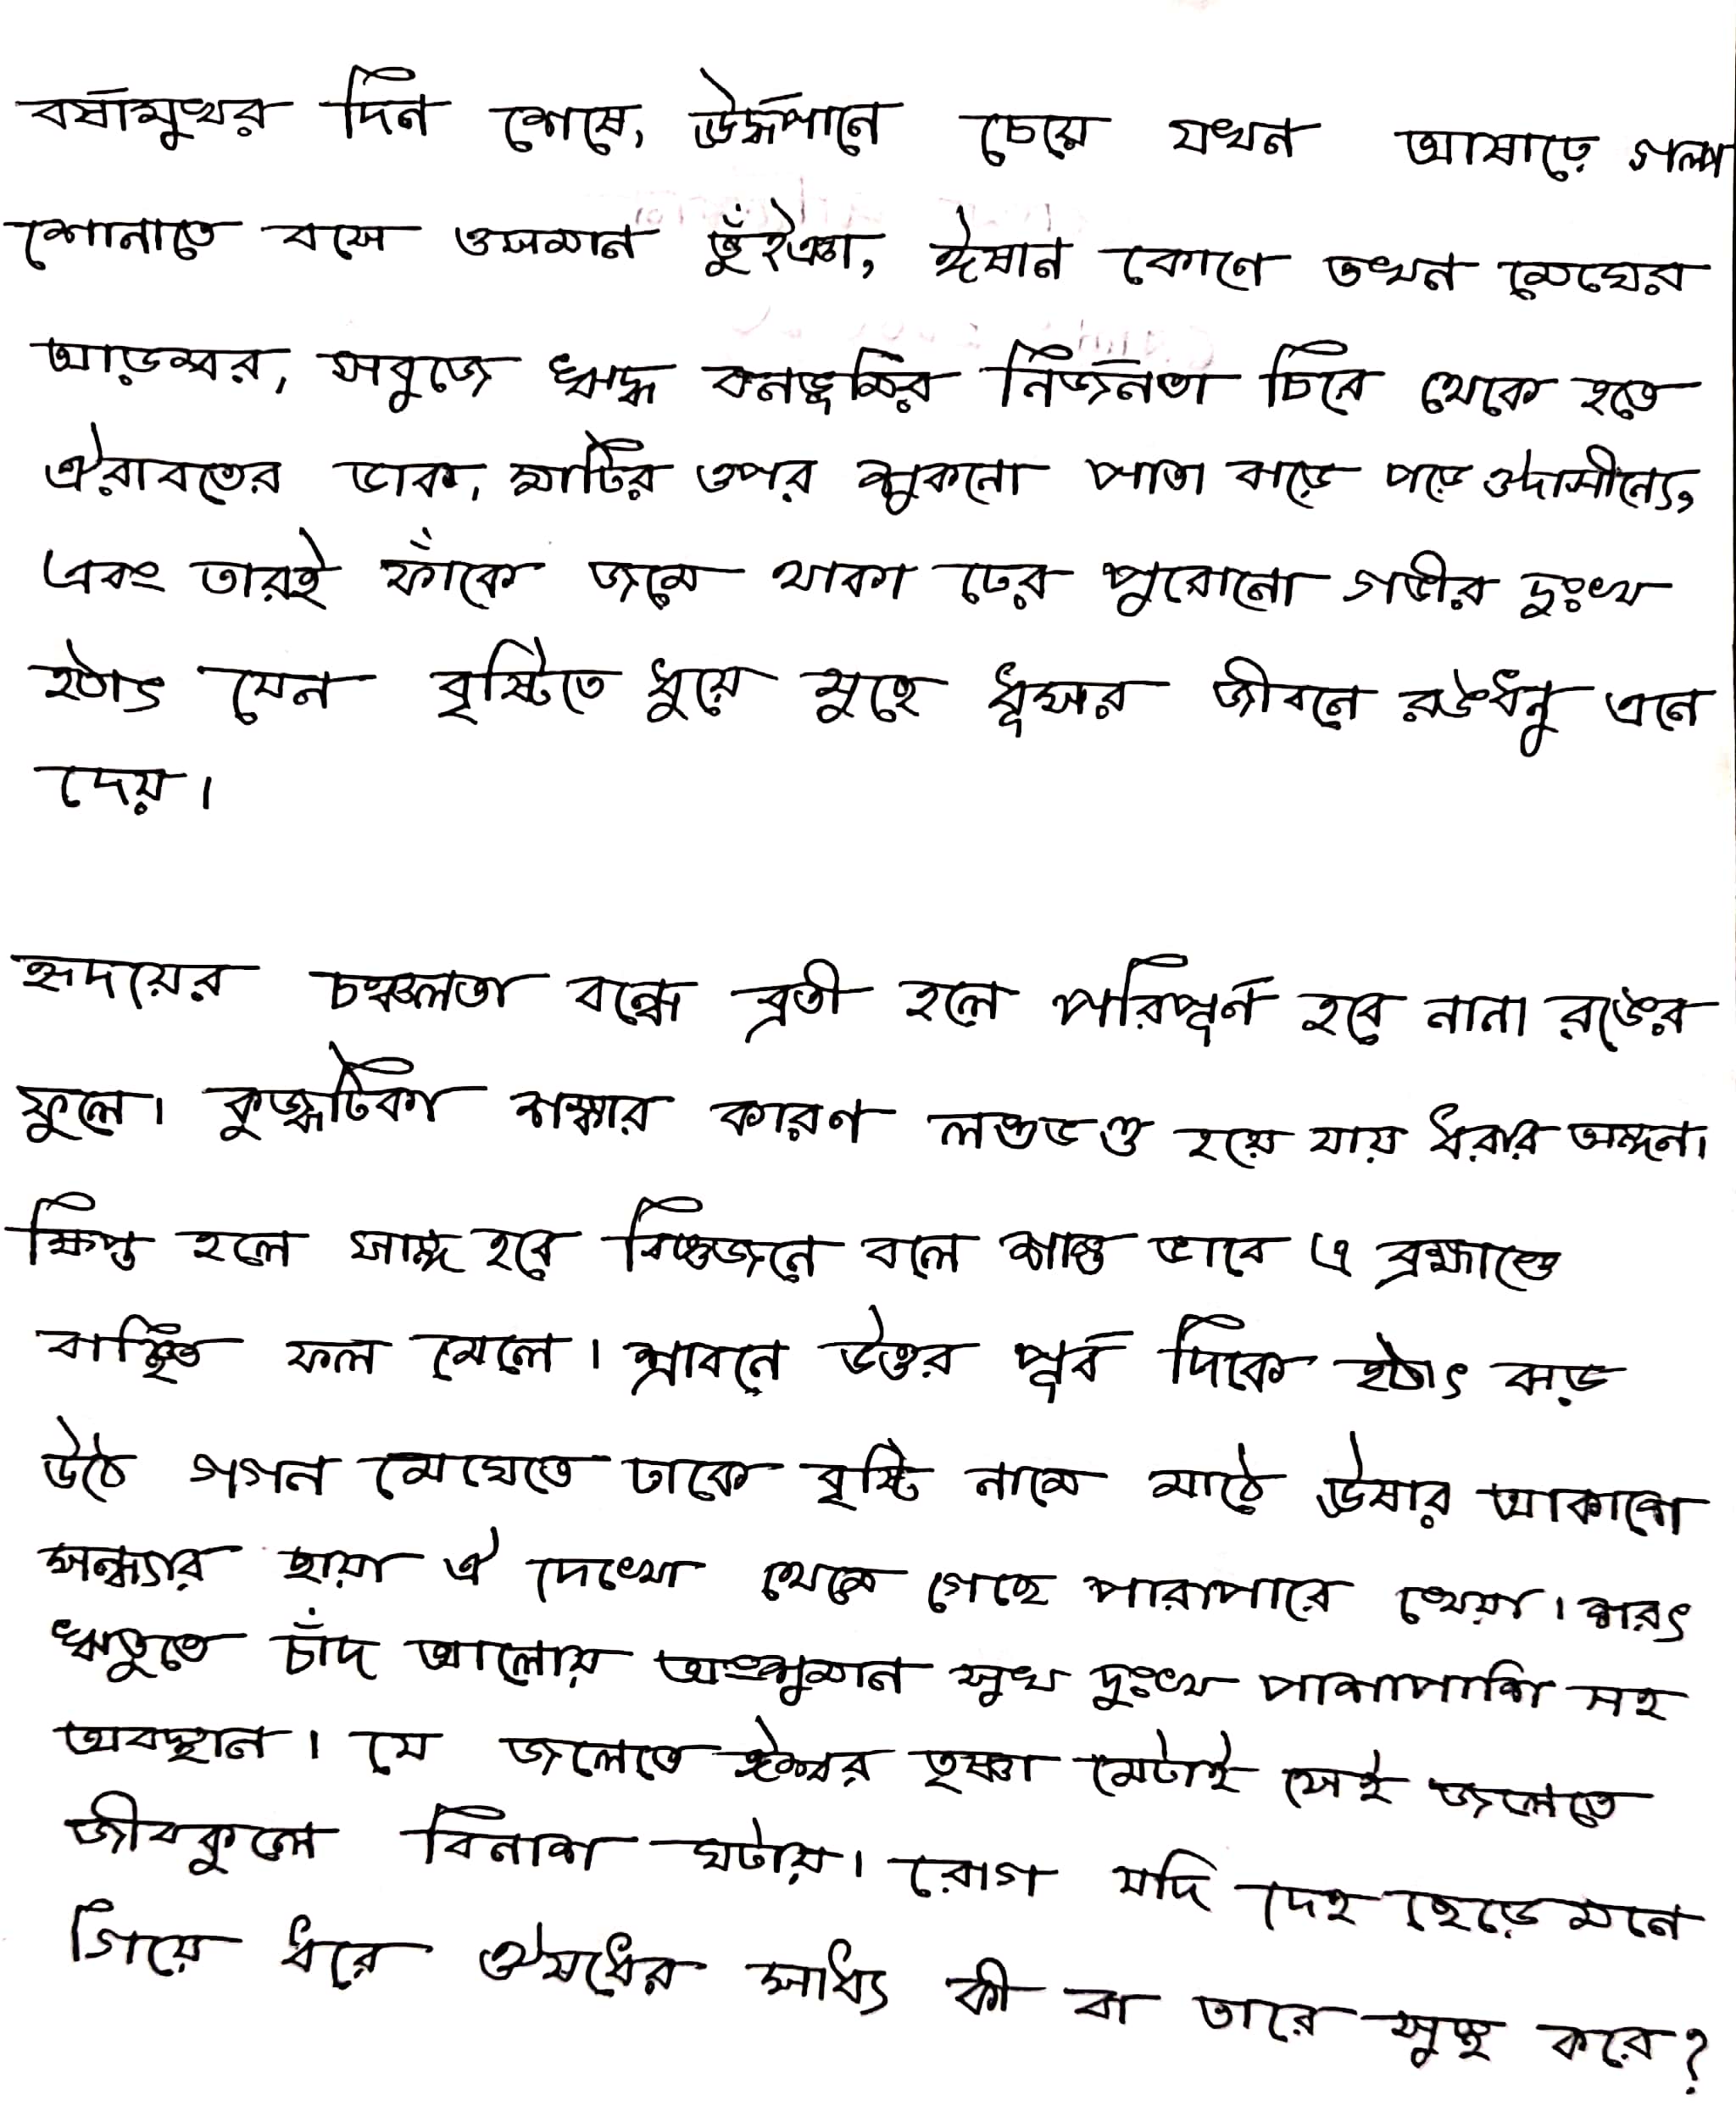 বর্ষামুখর দিন শেষে, ঊর্দ্ধপানে চেয়ে যখন আষাঢ়ে গল্প
শোনাতে বসে ওসমান ভুঁইঞা, ঈষান কোণে তখন মেঘের
আড়ম্বর, সবুজে ঋদ্ধ বনভূমির নির্জনতা চিরে থেকে হতে
ঐরাবতের ডাক, মাটির ওপর শুকনো পাতা ঝড়ে পড়ে ঔদাসীন্যে,
এবং তারই ফাঁকে জমে থাকা ঢের পুরোনো গভীর দুঃখ
হঠাৎ যেন বৃষ্টিতে ধুয়ে মুছে ধূসর জীবনে রঙধনু এনে
দেয়।
হৃদয়ের চঞ্চলতা বন্ধে ব্রতী হলে পরিপূর্ন হবে নানা রঙের
ফুলে। কুজ্ঝটিকা শঙ্কার কারণ লণ্ডভণ্ড হয়ে যায় ধরার অঙ্গন।
ক্ষিপ্ত হলে সাঙ্গ হবে বিজ্ঞজনে বলে শান্ত ভাবে এ ব্রহ্মাণ্ডে
বাঞ্ছিত ফল মেলে। শ্রাবনে উত্তর পূর্ব দিকে হঠাৎ ঝড়
উঠে গগন মেঘেতে ঢাকে বৃষ্টি নামে মাঠে ঊষার আকাশে
সন্ধ্যার ছায়া ঐ দেখো থেমে গেছে পারাপারে খেয়া। শরৎ
ঋতুতে চাঁদ আলোয় অংশুমান সুখ দুঃখ পাশাপাশি সহ
অবস্থান। যে জলেতে ঈশ্বর তৃষ্ণা মেটাই সেই জলেতে
জীবকুলে বিনাশ ঘটায়। রোগ যদি দেহ ছেড়ে মনে
গিয়ে ধরে ঔষধের সাধ্য কী বা তারে সুস্থ করে?